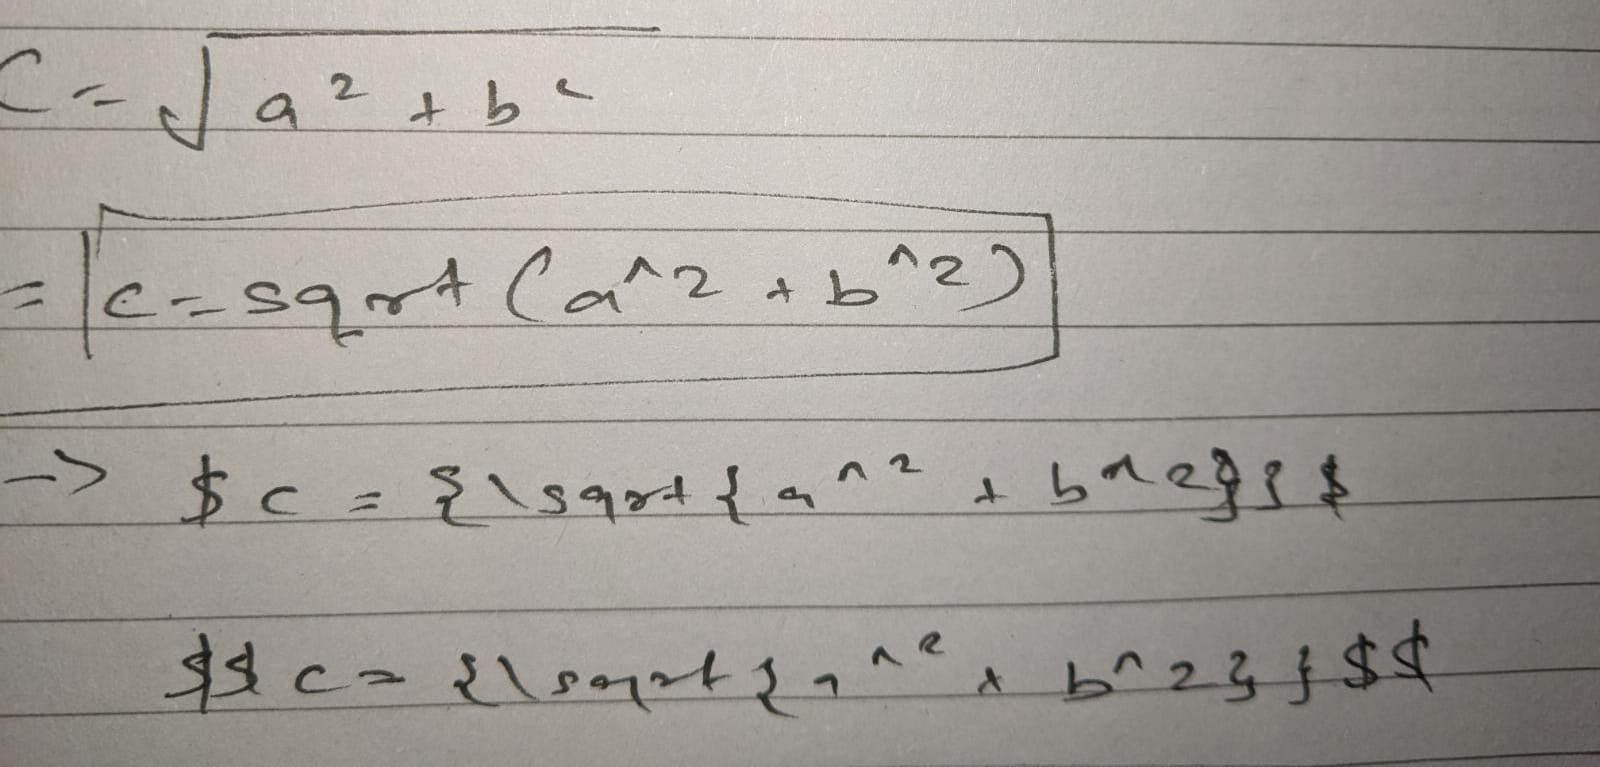 C = √a² + b²
= c = sqrt (a^2 + b^2)
-> $ c = {\sqrt{a^2 + b^2}} $
$$ c = {\sqrt{a^2 + b^2}} $$